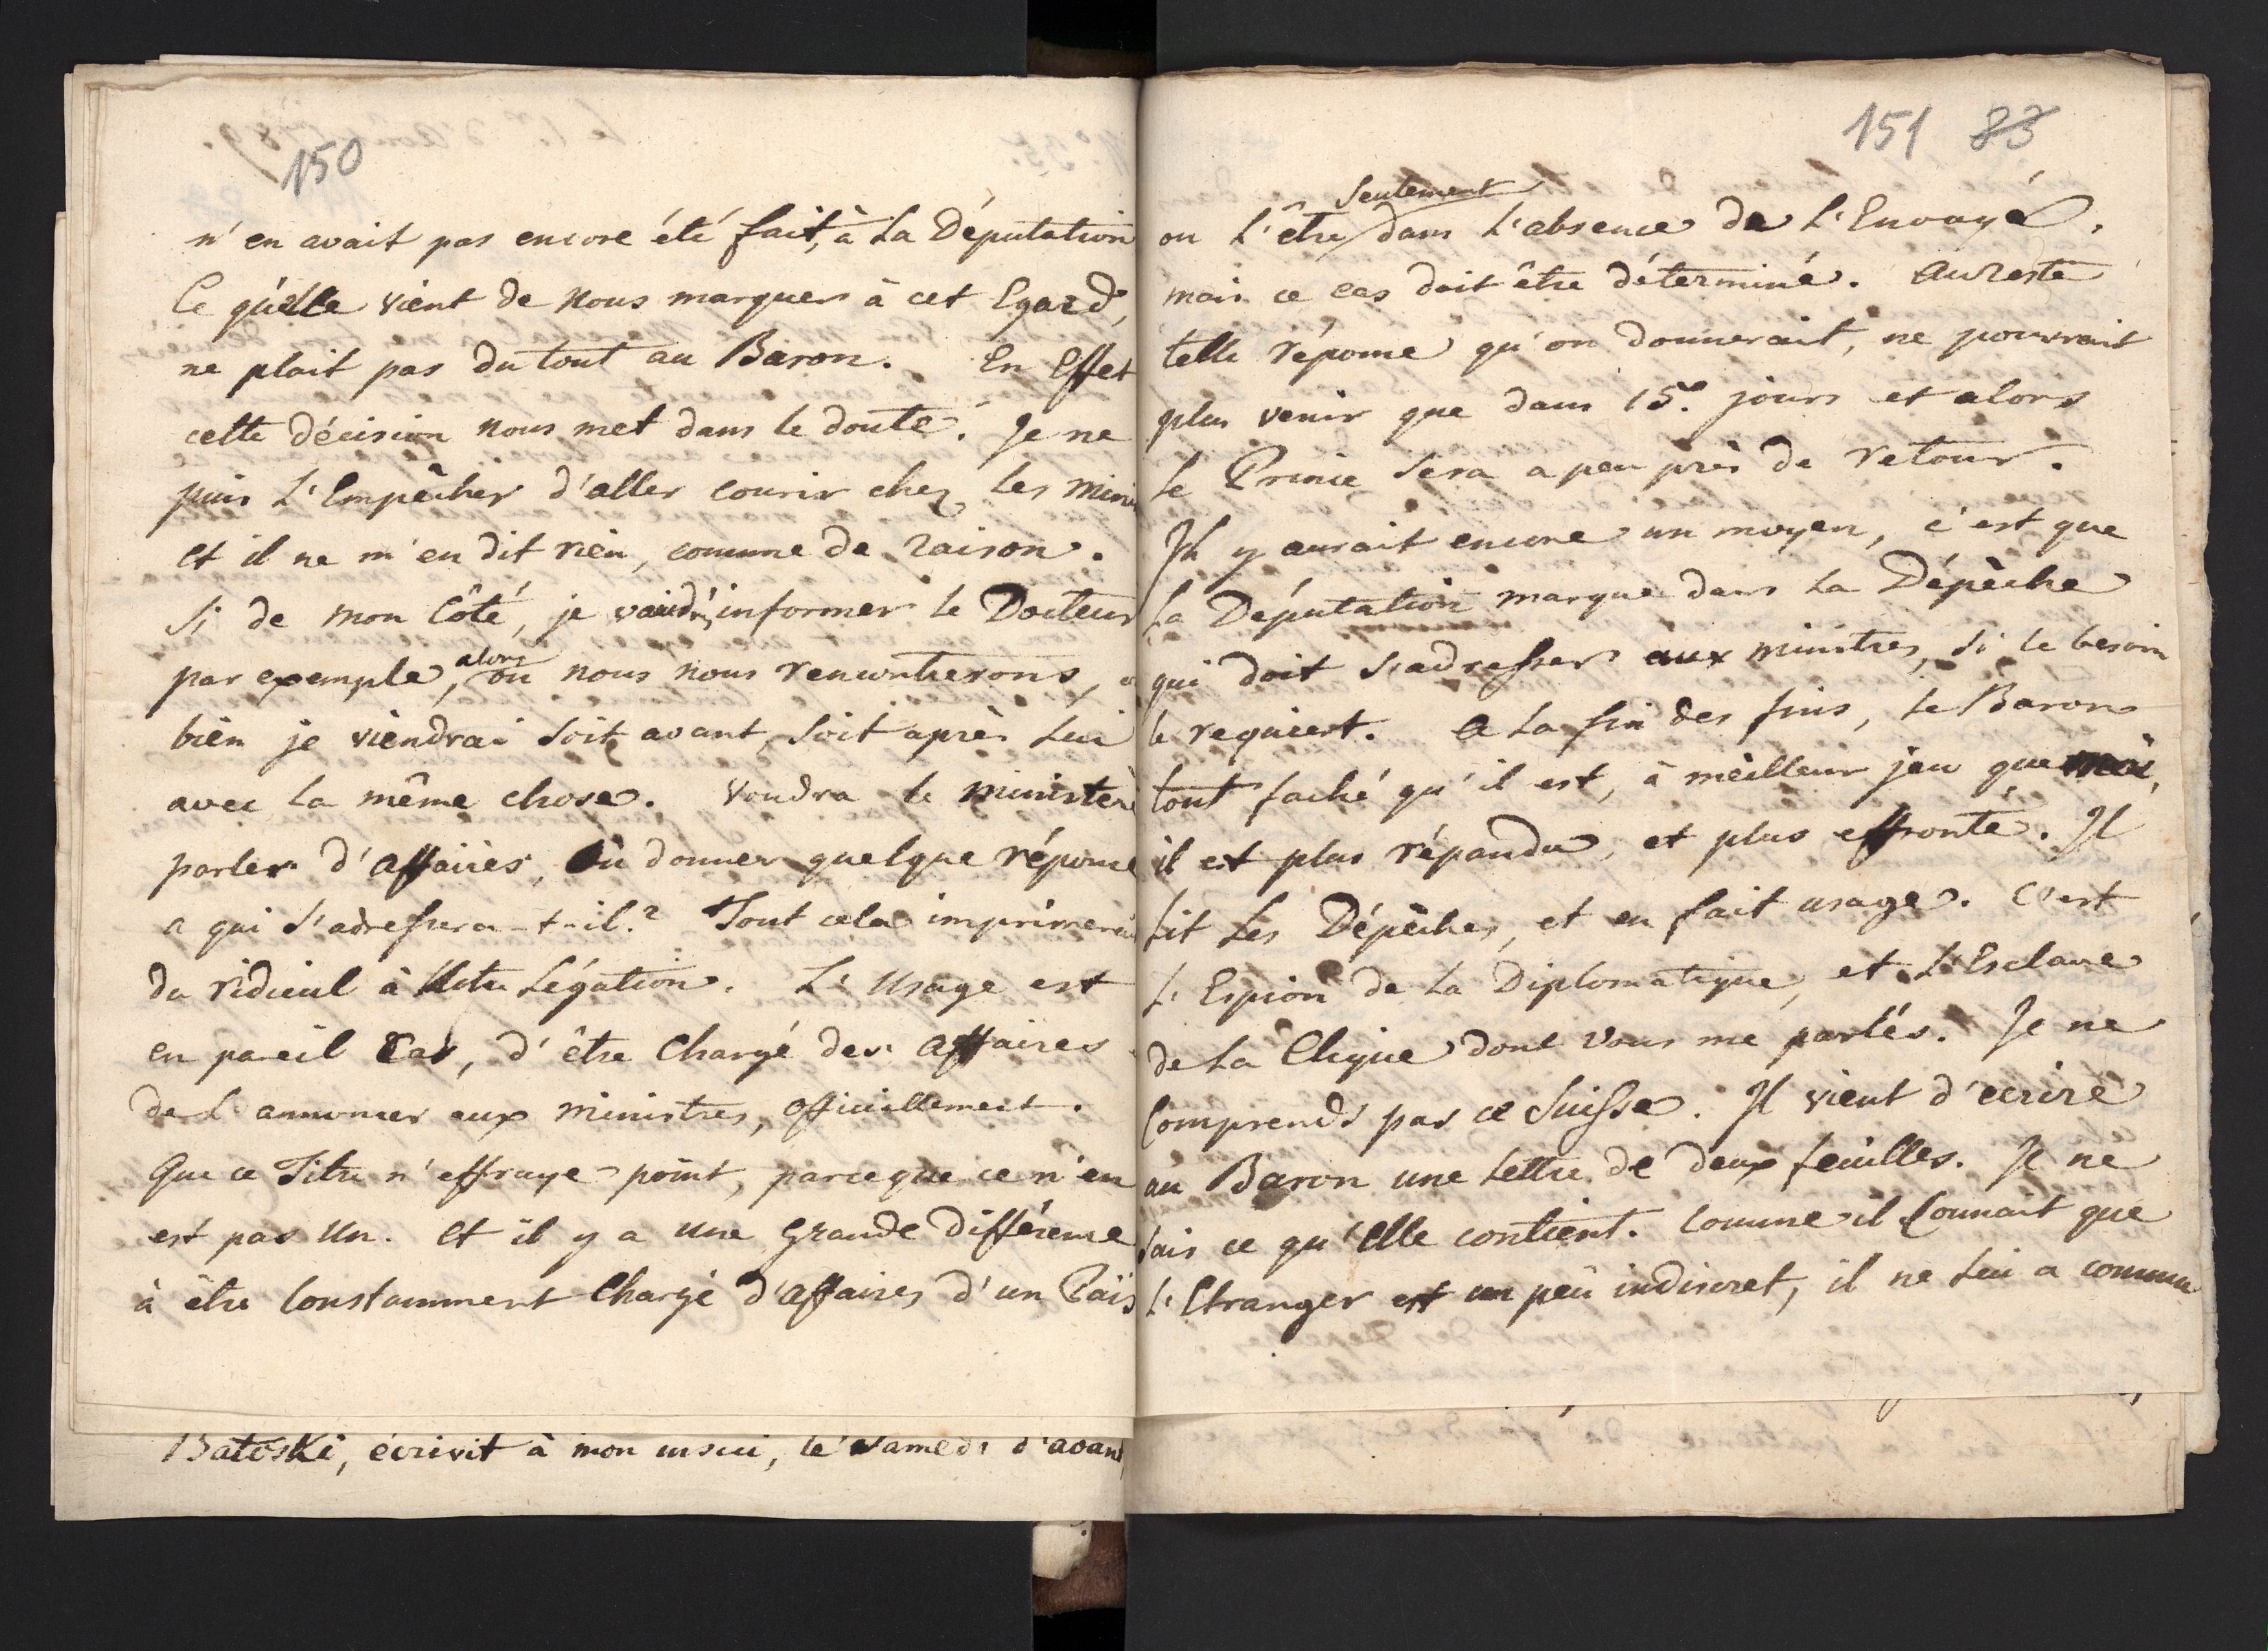 150
n'en avait pas encore été fait, à La Députation
Ce qu'elle vient de nous marquer à cet Egard,
ne plait pas du tout au Baron. En Effet
cette décision nous met dans le doute. Je ne
puis L'Empêcher d'aller courir chez les mini
et il ne m'en dit rien, comme de raison.
Si de mon Côté, je voudrai informer le Docteur
par exemple, alors ou nous nous rencontrerons,
bien je viendrai soit avant, soit après Lui
avec la même chose. Voudra le ministère
parler d'affaires, ou donner quelque réponse
a qui s'adressera-t-il? Tout cela imprimerai
du ridicul à Notre Légation. L'Usage est
en pareil Cas, d'être Chargé des affaires
de L'annoncer aux ministres, officiellement.
Que ce Titre n'effraye point, parceque ce n'en
est pas un. Et il y a une grande différence
à être Constamment Chargé d'affaires d'un Païs
Batoski, écrivit à mon insçu, le samedi d'avant
151 83
ou L'être seulement dans L'absence de L'Envoyé.
mais ce cas doit être déterminé. Au reste
telle réponse qu'on donnerait, ne pourrait
plus venir que dans 15. jours et alors
le Prince sera a peu près de retour.
Il y aurait encore un moyen, c'est que
La Députation marque dans La Dépêche
qui doit s'adresser aux ministres, si le besoin
le requiert. A La fin des fins, le Baron
tout faché qu'il est, à meilleur jeu que moi,
il est plus répandu, et plus effronté. Il
lit Les Dépêches, et en fait usage. C'est
L'Espion de La Diplomatique, et L'Esclave
de La Clique dont vous me parlés. Je ne
Comprends pas ce Suisse. Il vient d'ecrire
au Baron une Lettre de deux feuilles. Je ne
sais ce qu'Elle contient. Comme il Connait que
L'Etranger est un peu indiscret, il ne Lui a commu